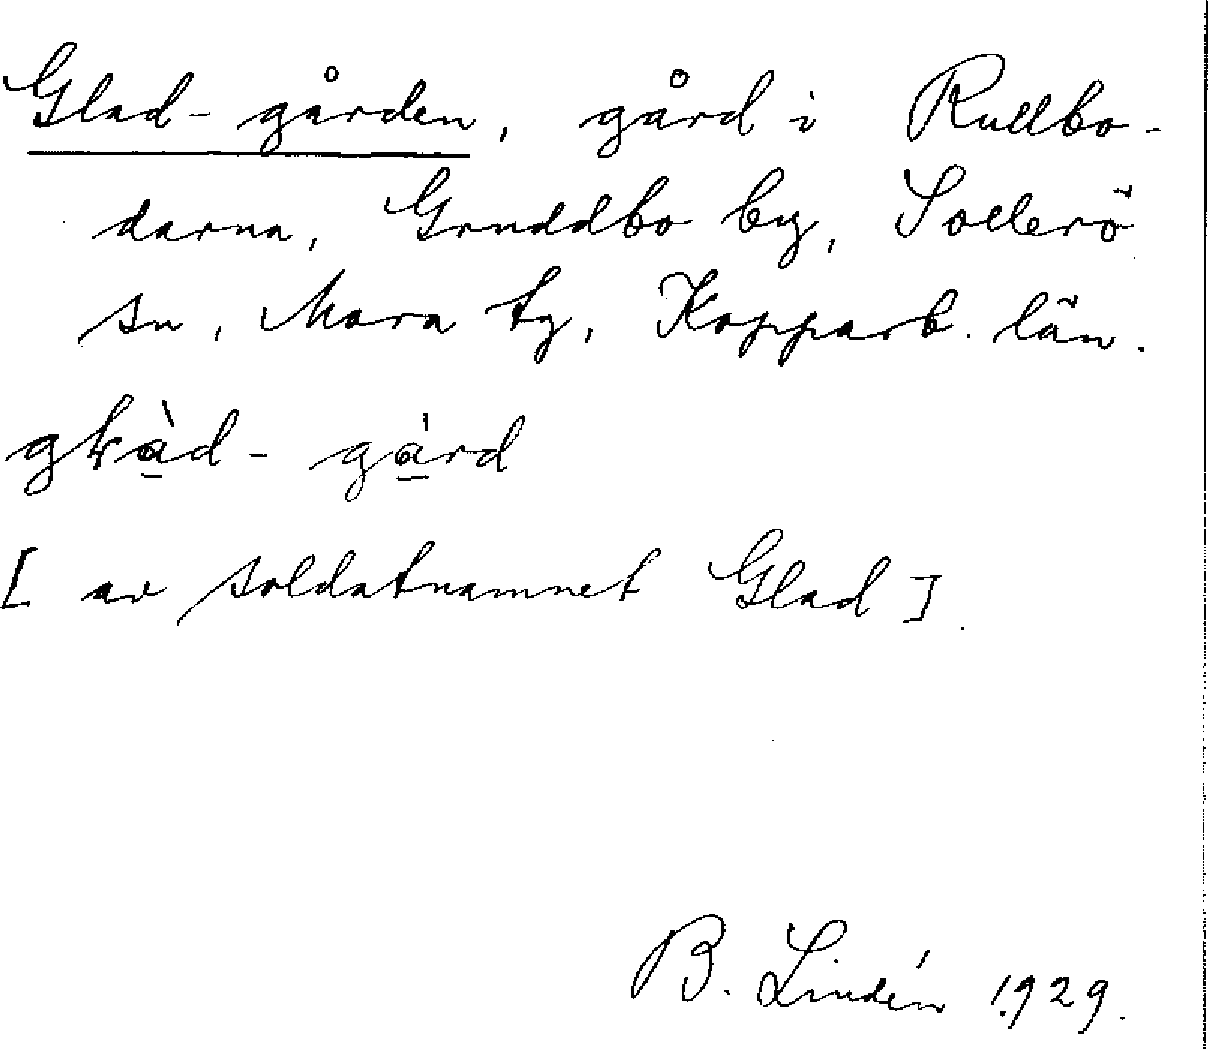 Glad-gården, gård i Rullbo-
darna, Gruddbo by, Sollerö
sn, Mora tg, Kopparb. län.
gḷàd- gàrd
[ av soldatnamnet Glad ].
B. Lindén 1929.